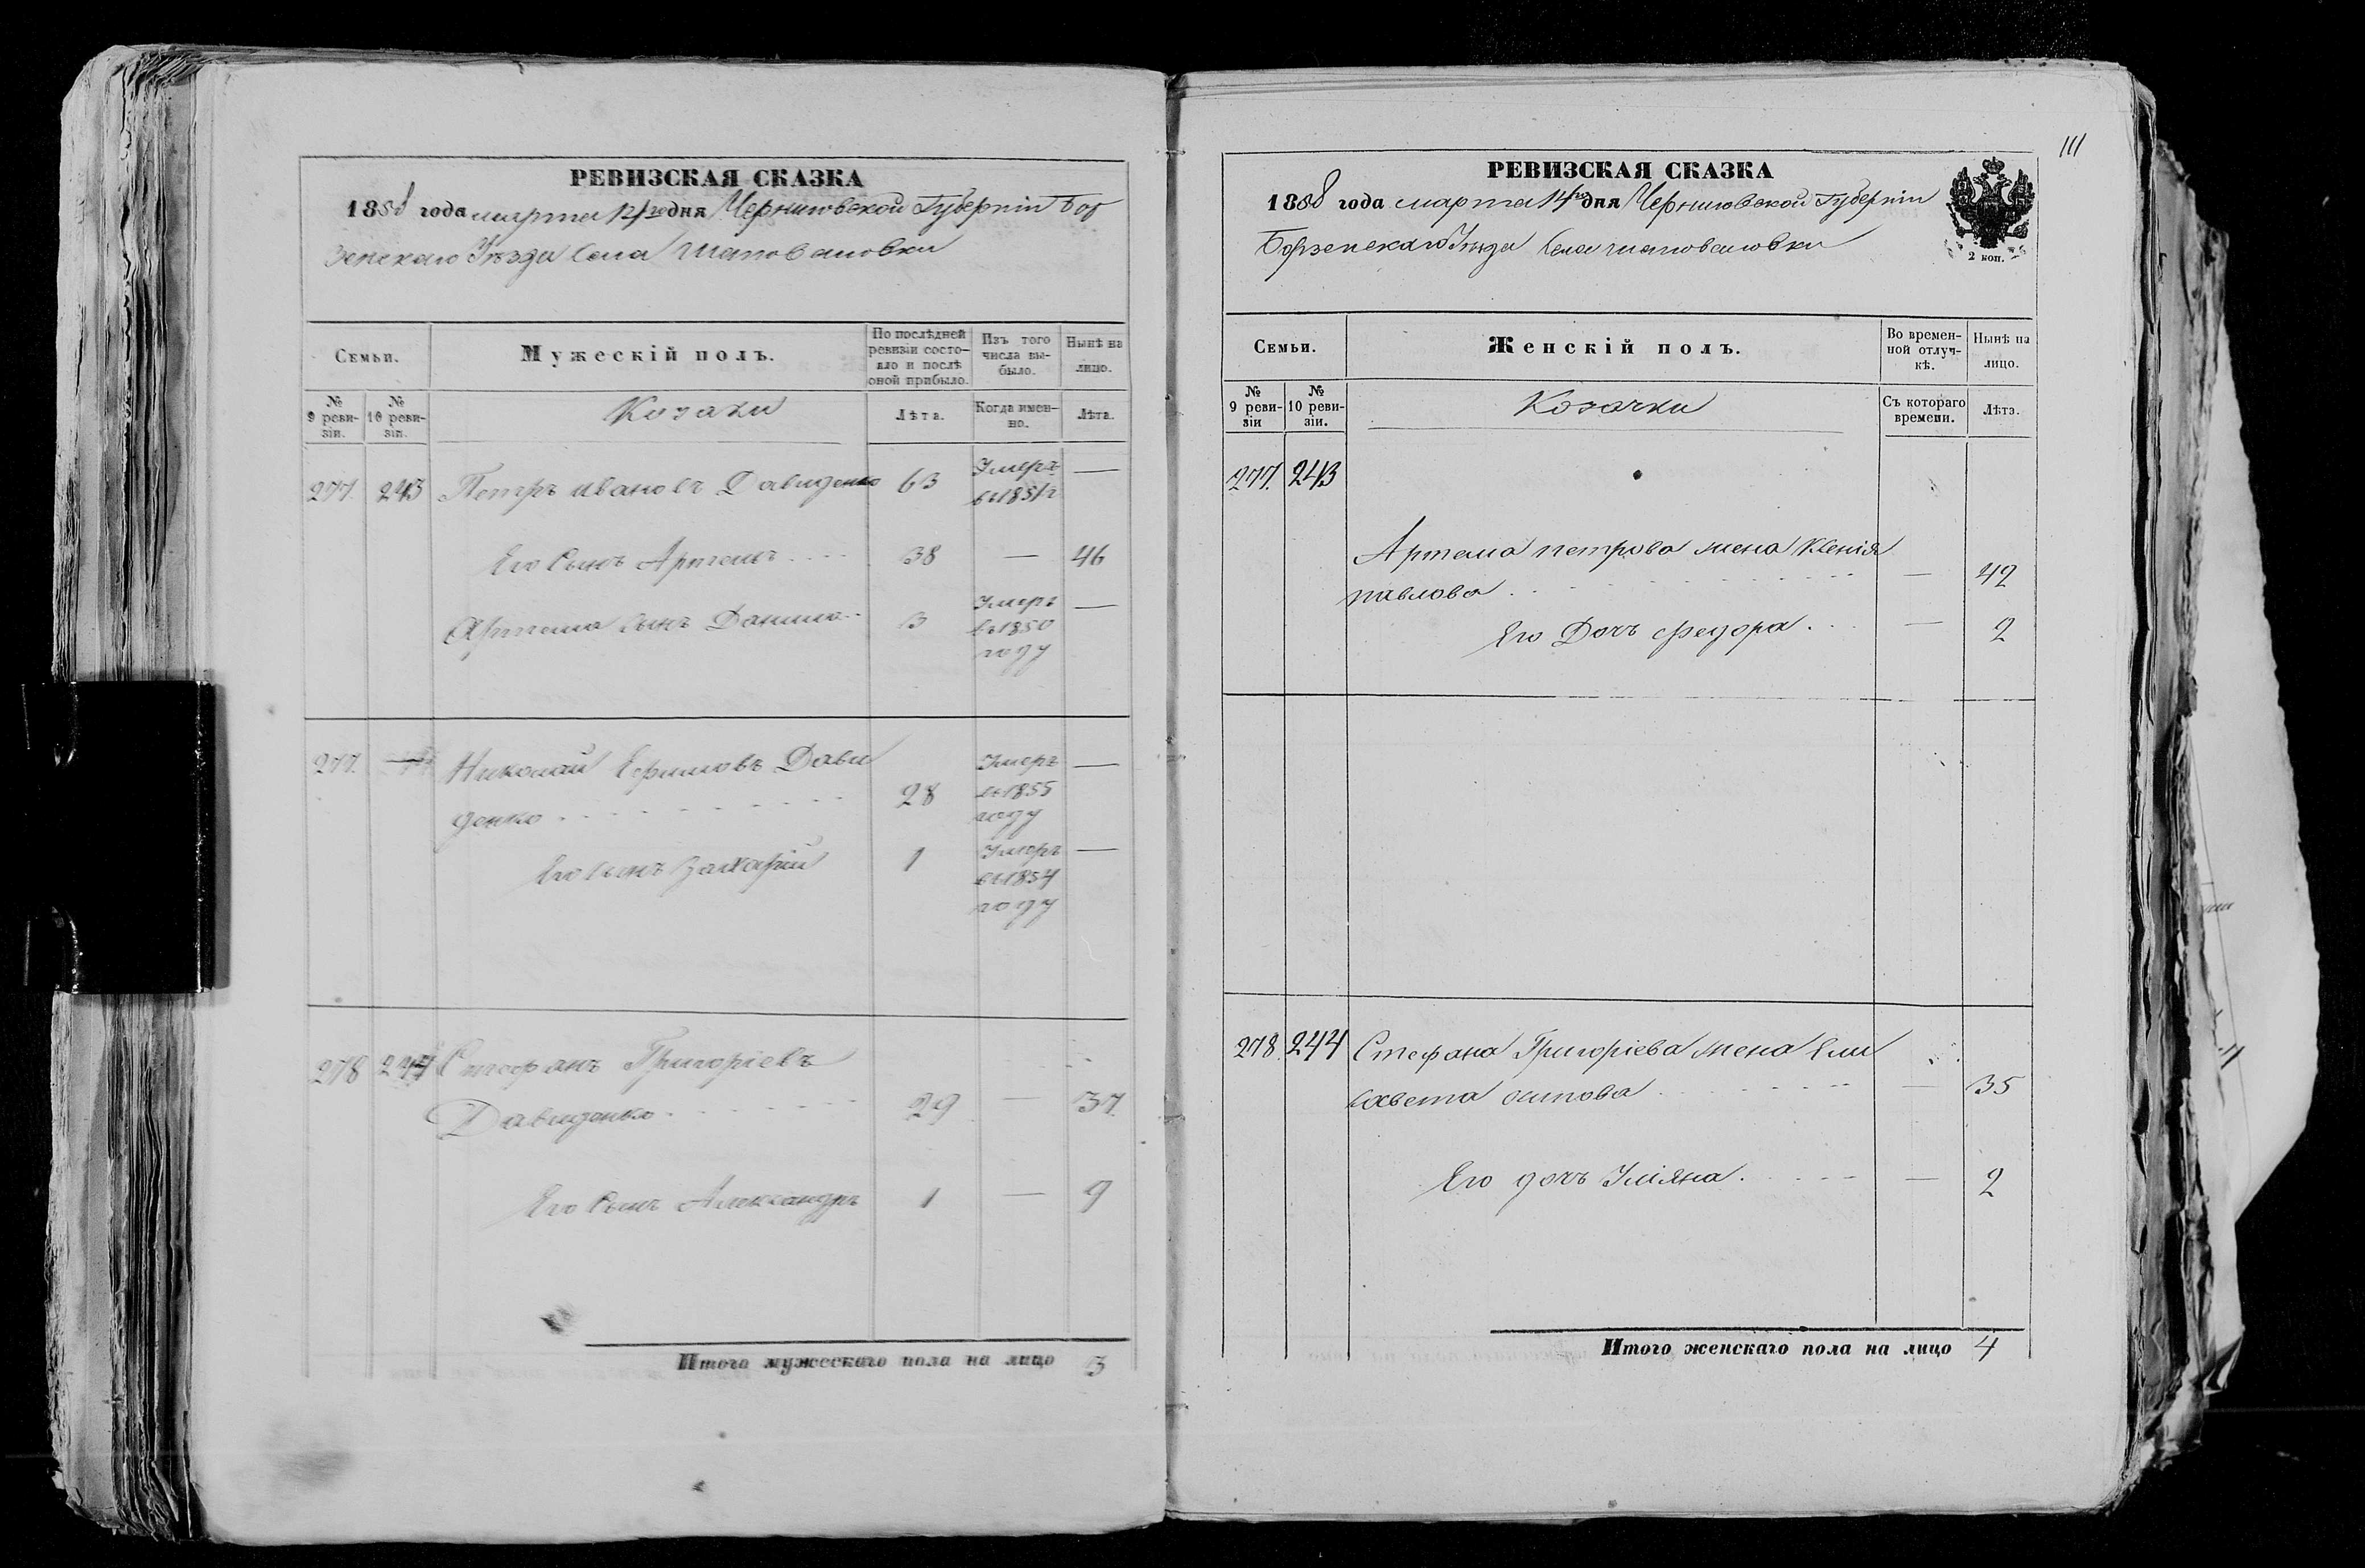 РЕВИЗСКАЯ СКАЗКА
1858 года марта 14го дня Черниговской Губерніи Бор
зенскаго Уѣзда Села Шаповаловки
Семьи.
Мужескій полъ.
По послѣдней
ревизіи состо-
яло и послѣ
оной прибыло.
Изъ того
числа вы-
было.
Нынѣ на
лицо.
№
9 реви-
зіи.
№
10 реви-
зіи.
Козаки
Лѣта.
Когда имен-
но.
Лѣта.
277. 243 Петръ Ивановъ Давиденко 63 Умеръ —
въ 1851г
Его Сынъ Артемъ . . . . 38 — 46
Артема Сынъ Данило . . 3 Умеръ —
въ 1850
году
277. — Николай Ефимовъ Дави
денко . . . . . . . . 28 Умеръ —
въ 1855
году
Его Сынъ Захарій 1 Умеръ —
въ 1854
году
278 244 Стефанъ Григоріевъ
Давиденко . . . . . . . 29 — 37.
Его Сынъ Александръ 1 — 9
Итого мужескаго пола на лицо 3
111
РЕВИЗСКАЯ СКАЗКА
1858 года марта 14го дня Черниговской Губерніи
Борзенскаго Уѣзда Села Шаповаловки
2 коп.
Семьи.
Женскій полъ.
Во времен-
ной отлуч-
кѣ.
Нынѣ на
лицо.
№
9 реви-
зіи
№
10 реви-
зіи.
Козачки
Съ котораго
времени.
Лѣта.
277. 243
Артема петрова жена Ксенія
павлова . . . . . . . . — 42
Его Дочь Федора . . . — 2
278. 244 Стефана Григоріева жена Ели
савета осипова . . . . . . — 35
Его дочь Уліяна . . . . — 2
Итого женскаго пола на лицо 4